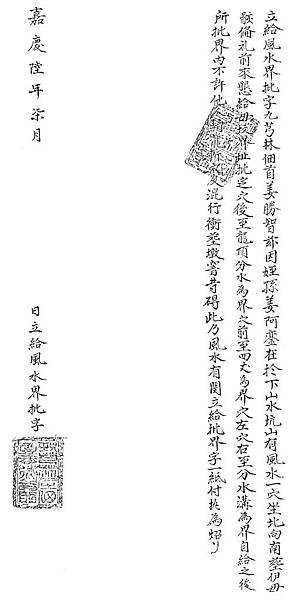 立給風水界批字九芎林佃首姜勝智茲因姪孫姜阿鑾在於下山水坑山有風水一穴坐北向南塟伊母
骸備礼前來懇給毋 界址批定穴後至龍頂分水為界穴前至四丈為界穴左穴右至分水溝為界自給之後
所批界內不許他人 混行衝塟墩害苛碍此乃風水有関立給批界字一紙付执為炤
嘉慶陸年柒月
日立給風水界批字